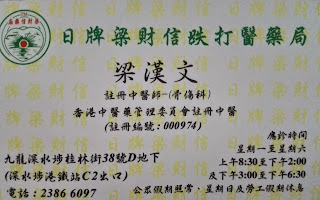 日牌梁財信跌打醫藥局
梁漢文
註冊中醫師-(骨傷科)
香港中醫藥管理委員會註冊中醫
(註冊編號：000974)
應診時間
星期一至星期六
上午8:30至下午2:00
及下午3:00至下午6:30
公眾假期照常，星期日及勞工假期休息
九龍深水埗桂林街38號D地下
(深水埗港鐵站C2出口)
電話：2386 6097